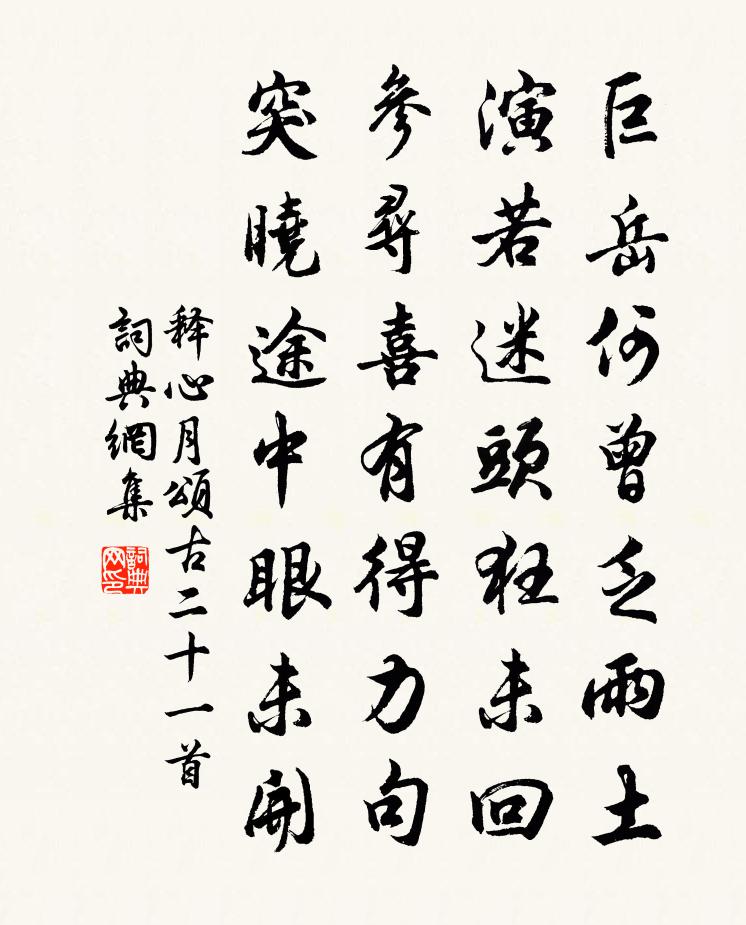 巨岳何曾乏雨土
演若迷頭狂未回
參尋喜有得力句
突曉途中眼未開
释心月頌古二十一首
詞典網集
詞典网印